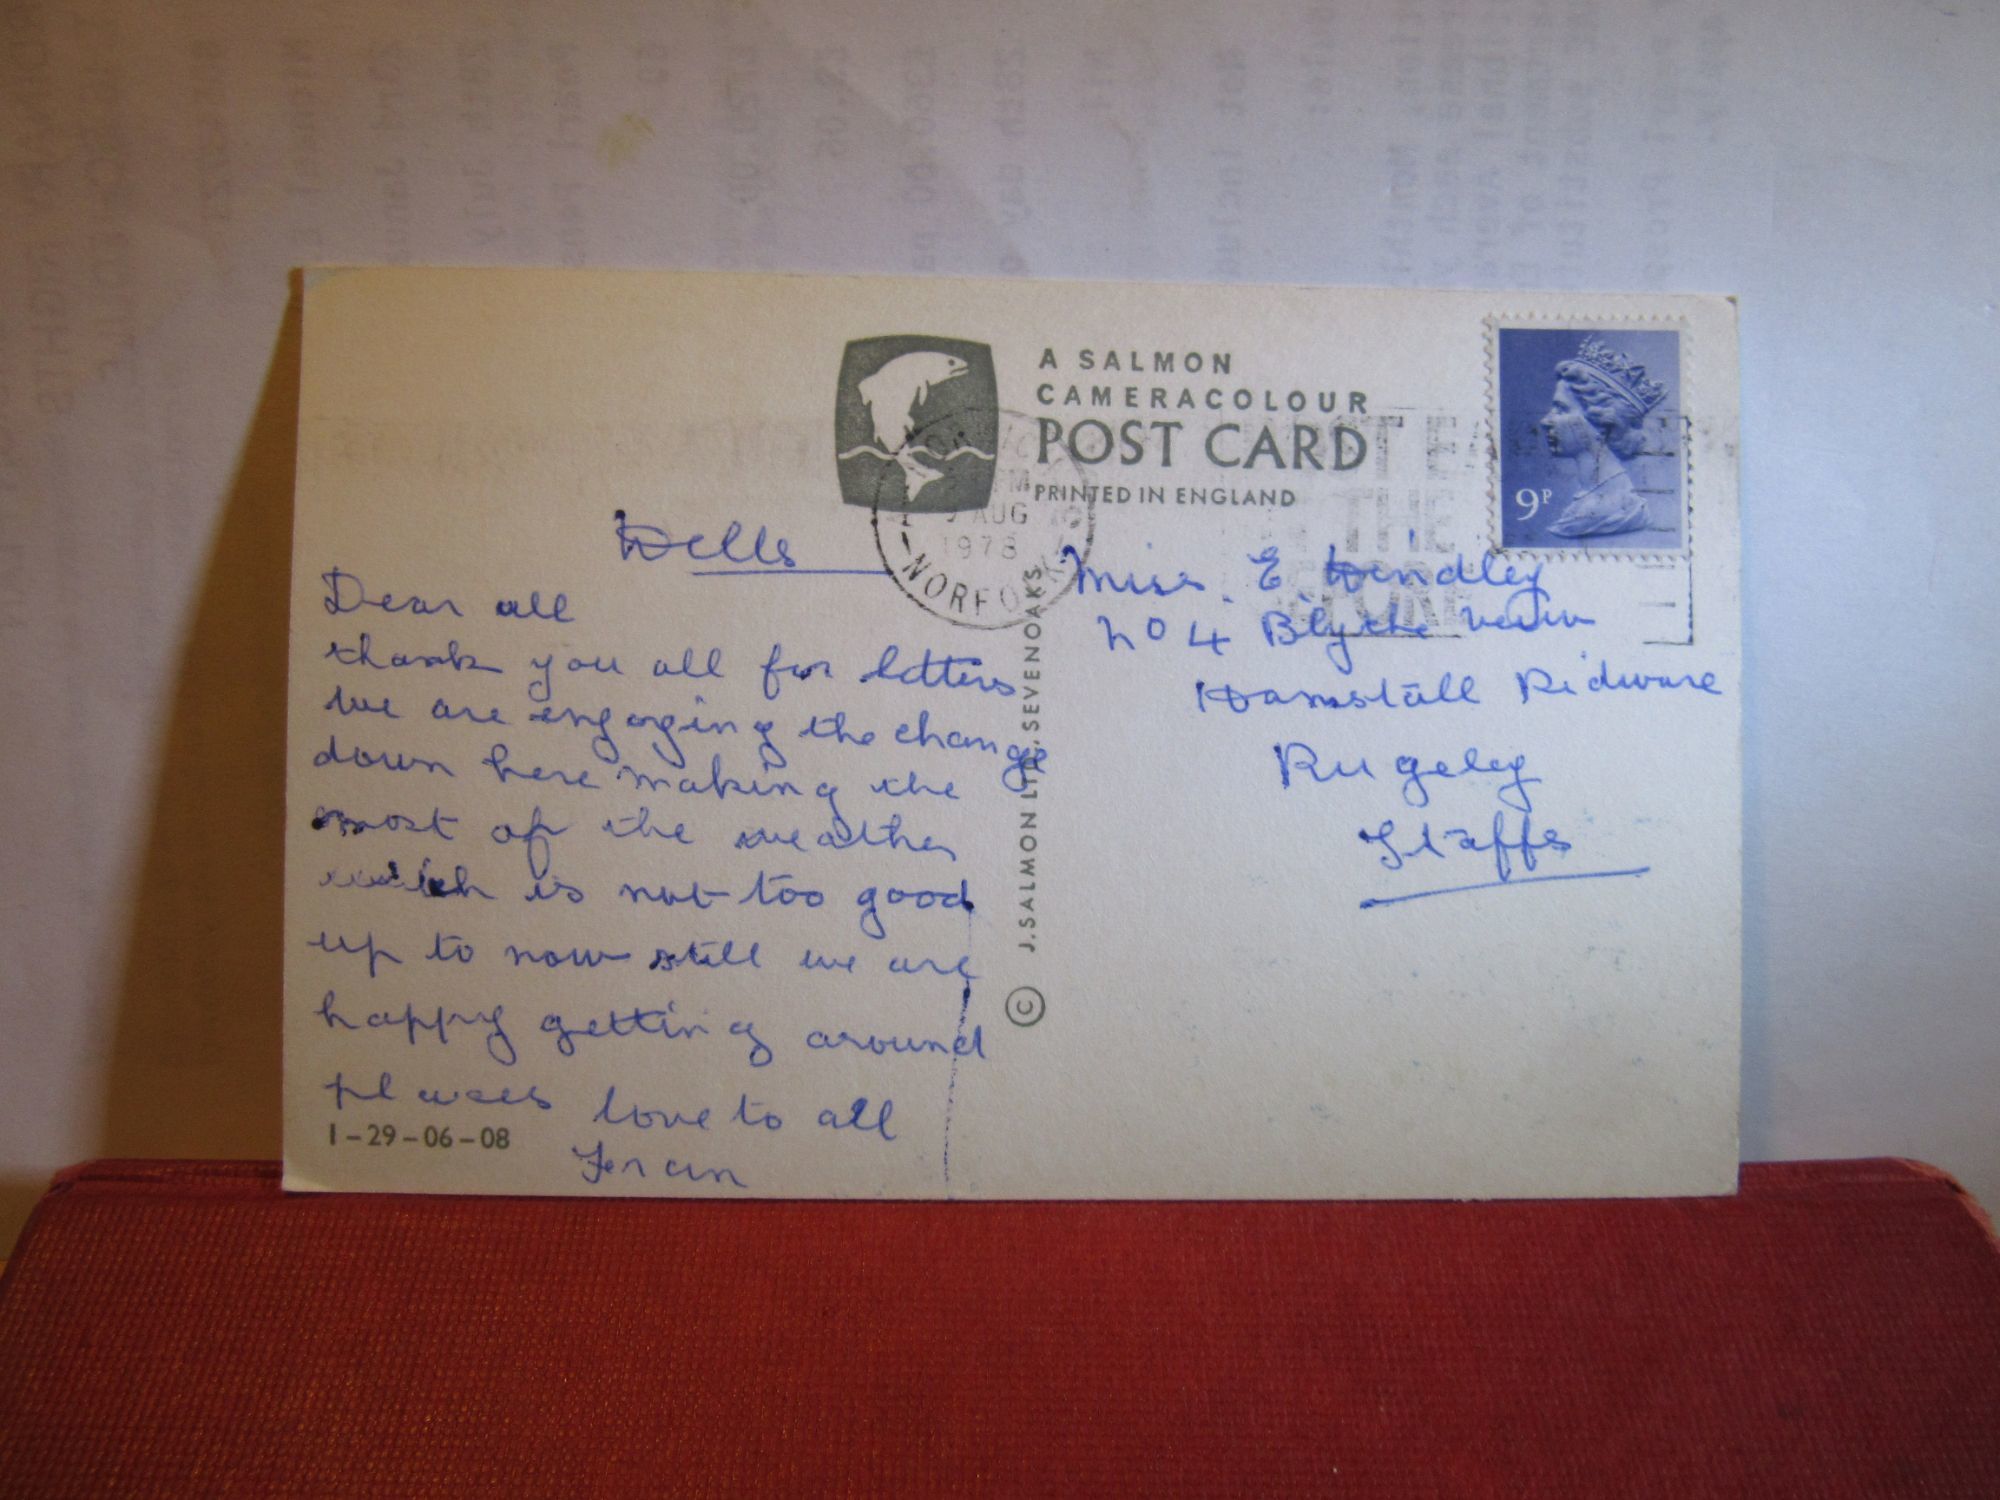 A SALMON
CAMERACOLOUR
POST CARD
PRINTED IN ENGLAND
9P
AUG
1978
NORFOLK
Wells
Dear all
thank you all for letters
we are engoying the change
down here making the
most of the weather
which is not too good
up to now still we are
happy getting around
places love to all
1-29-06-08
© J. SALMON LTD., SEVENOAKS
Miss. E Hindley
No 4 Blythe View
Hamstall Ridware
Rugeley
Staffs